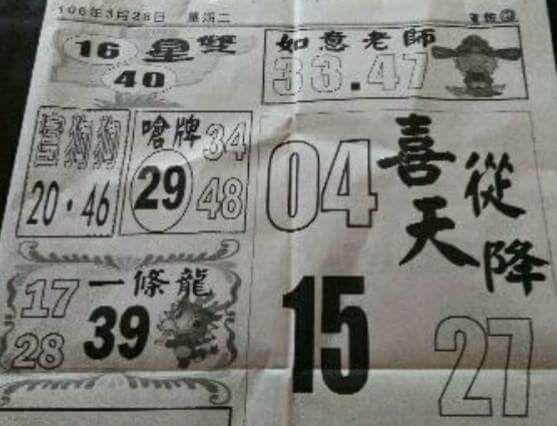 106年3月28日 星期二
16 雙星
40
如意老師
33.47
旺狗狗
20·46
嗆牌 34
29 48
04
喜從天降
15
27
一條龍
17
39
28